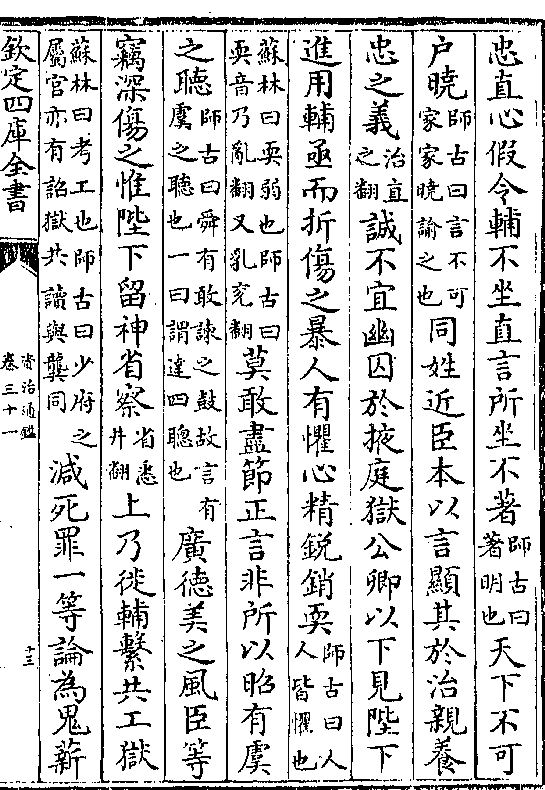 忠直心假令輔不坐直言所坐不著師古曰著明也天下不可
户曉師古曰言不可家家曉諭之也同姓近臣本以言顯其於治親養
忠之義治直之翻誠不宜幽囚於掖庭獄公卿以下見陛下
進用輔亟而折傷之暴人有懼心精銳銷耎師古曰人人皆懼也
蘇林曰耎弱也師古曰耎音乃亂翻又乳兖翻莫敢盡節正言非所以昭有虞
之聽師古曰舜有敢諫之鼓故言有虞之聽也一曰謂達四聰也廣德美之風臣等
竊深傷之惟陛下留神省察省悉井翻上乃徙輔繫共工獄
蘇林曰考工也師古曰少府之屬官亦有詔獄共讀與龔同減死罪一等論為鬼薪
欽定四庫全書
資治通鑑
卷三十一
十三